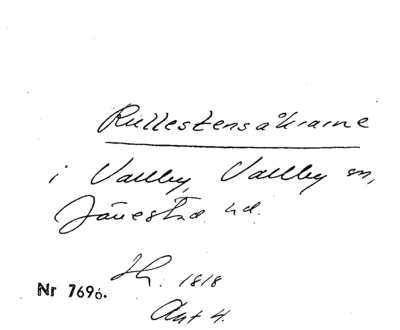 Rullestensåkrarne
i Vallby, Vallby sn,
Järrestad hd.
Sk. 1818
Nr 7696.
Akt 4.